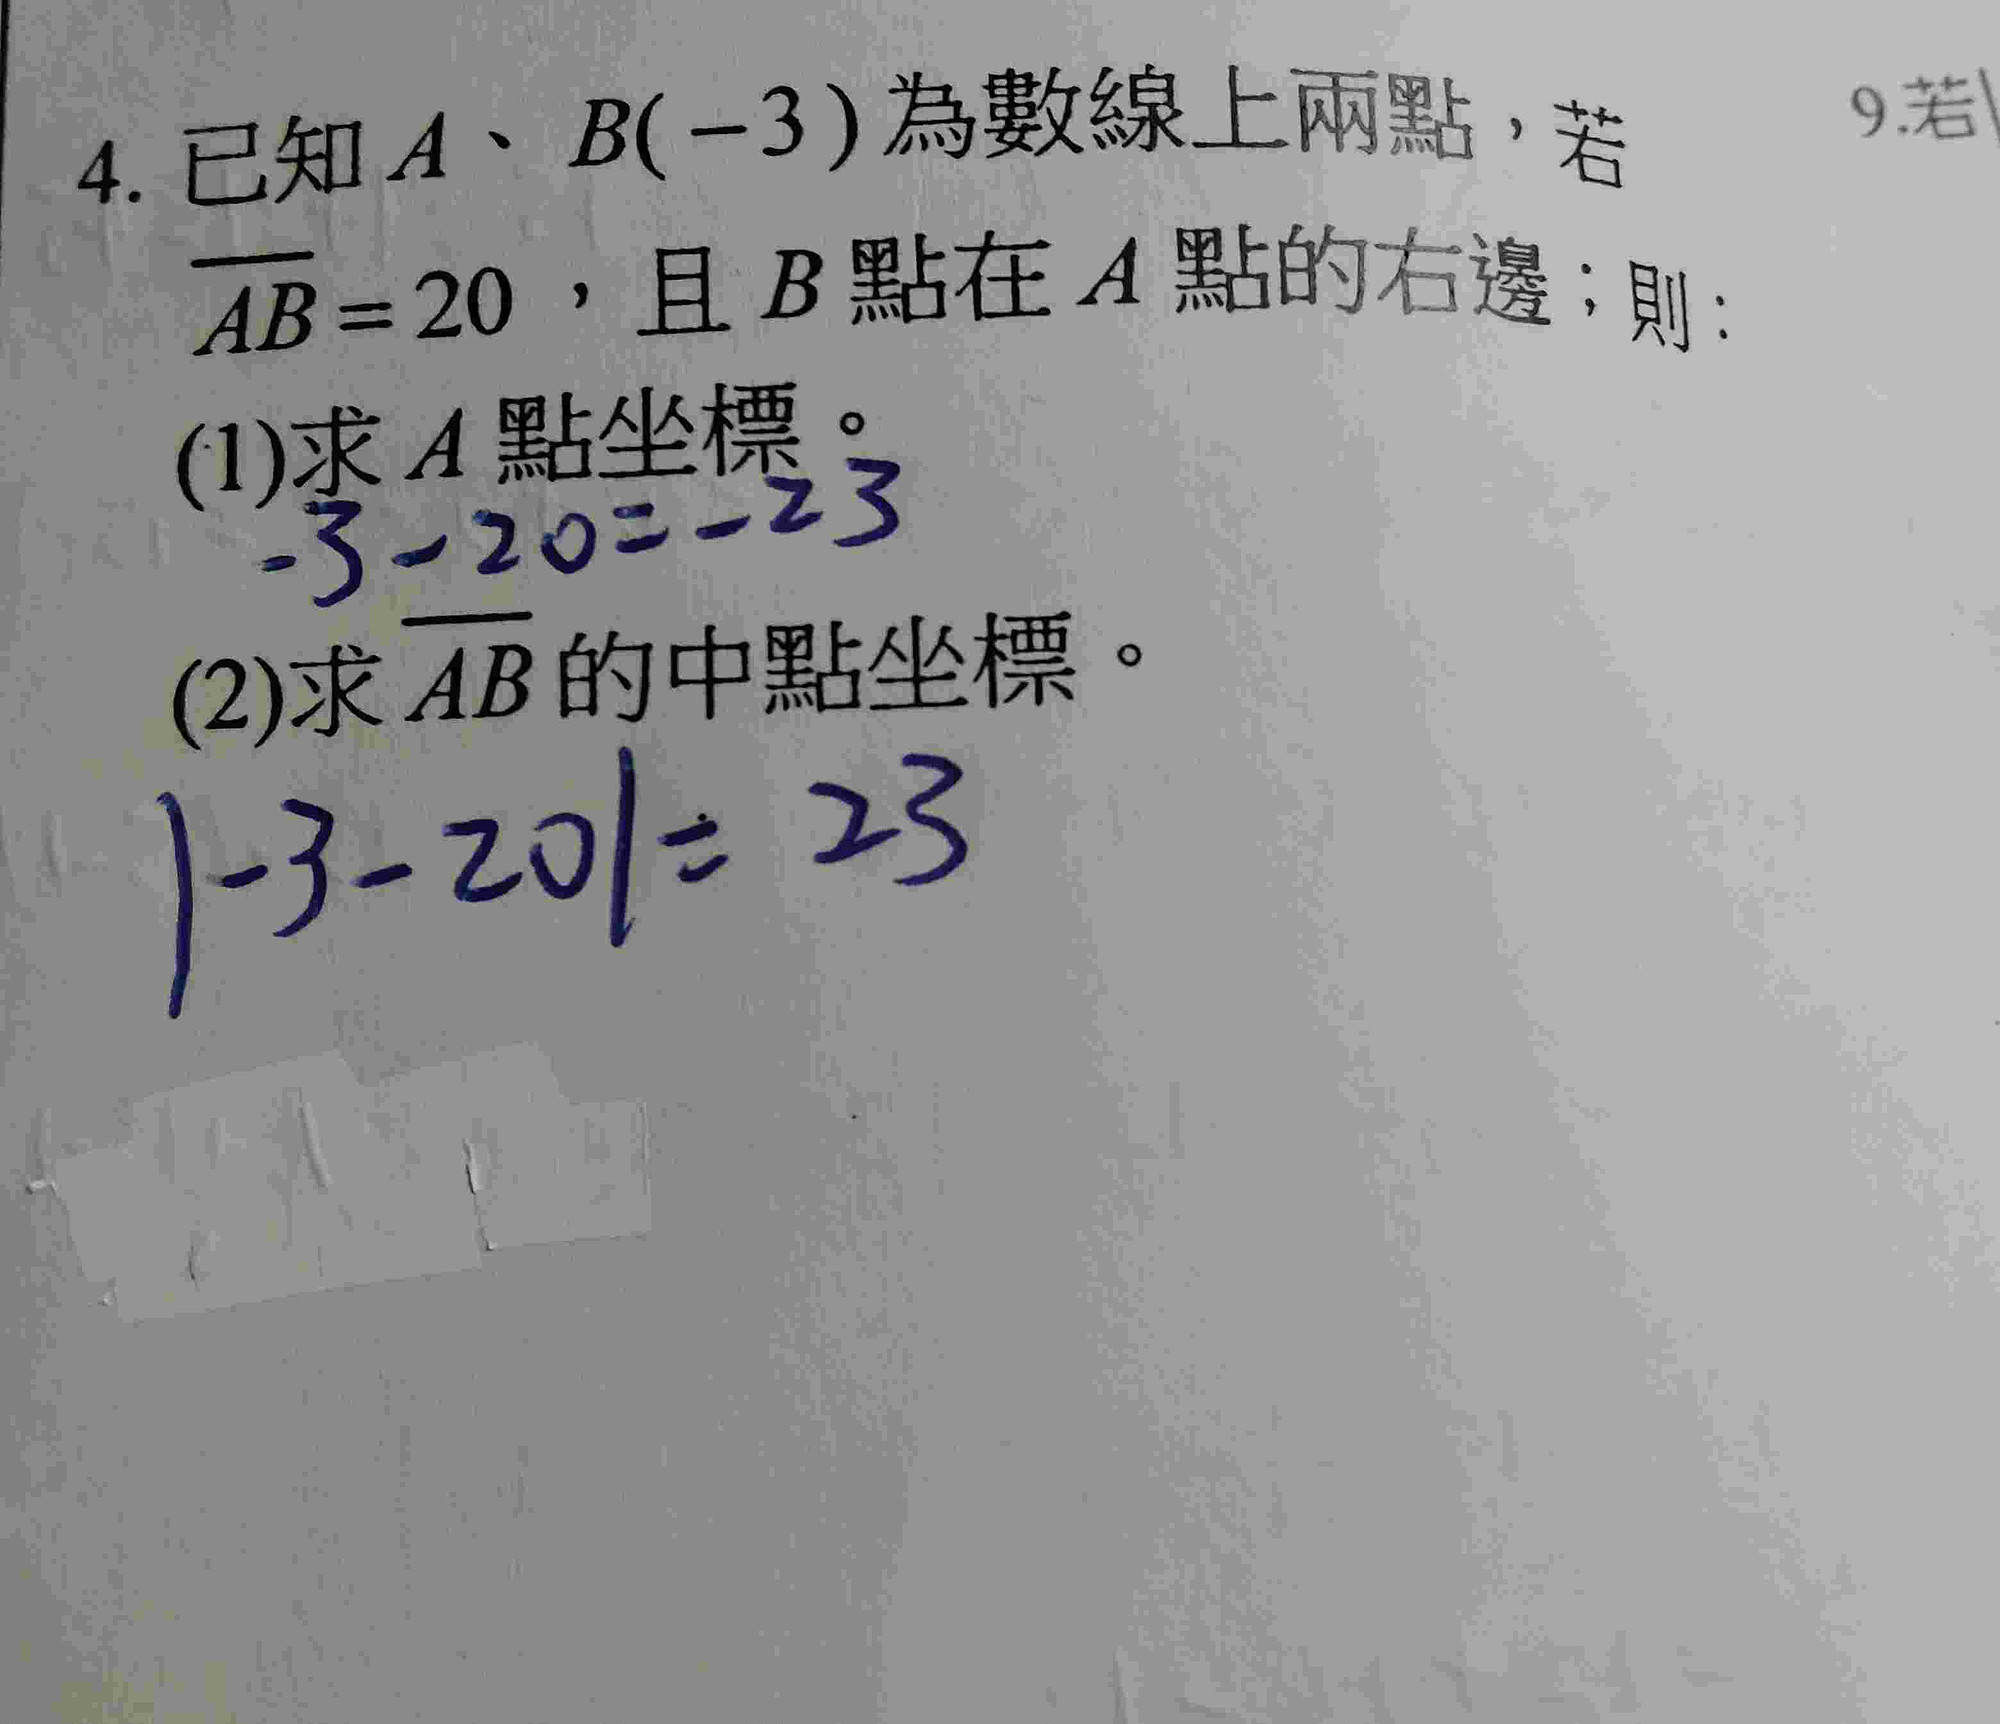 4. 已知 A、B(-3)為數線上兩點,若
\overline{AB}=20,且 B 點在 A 點的右邊;則:
(1)求 A 點坐標。
-3-20=-23
(2)求 \overline{AB} 的中點坐標。
|-3-20|= 23
9.若